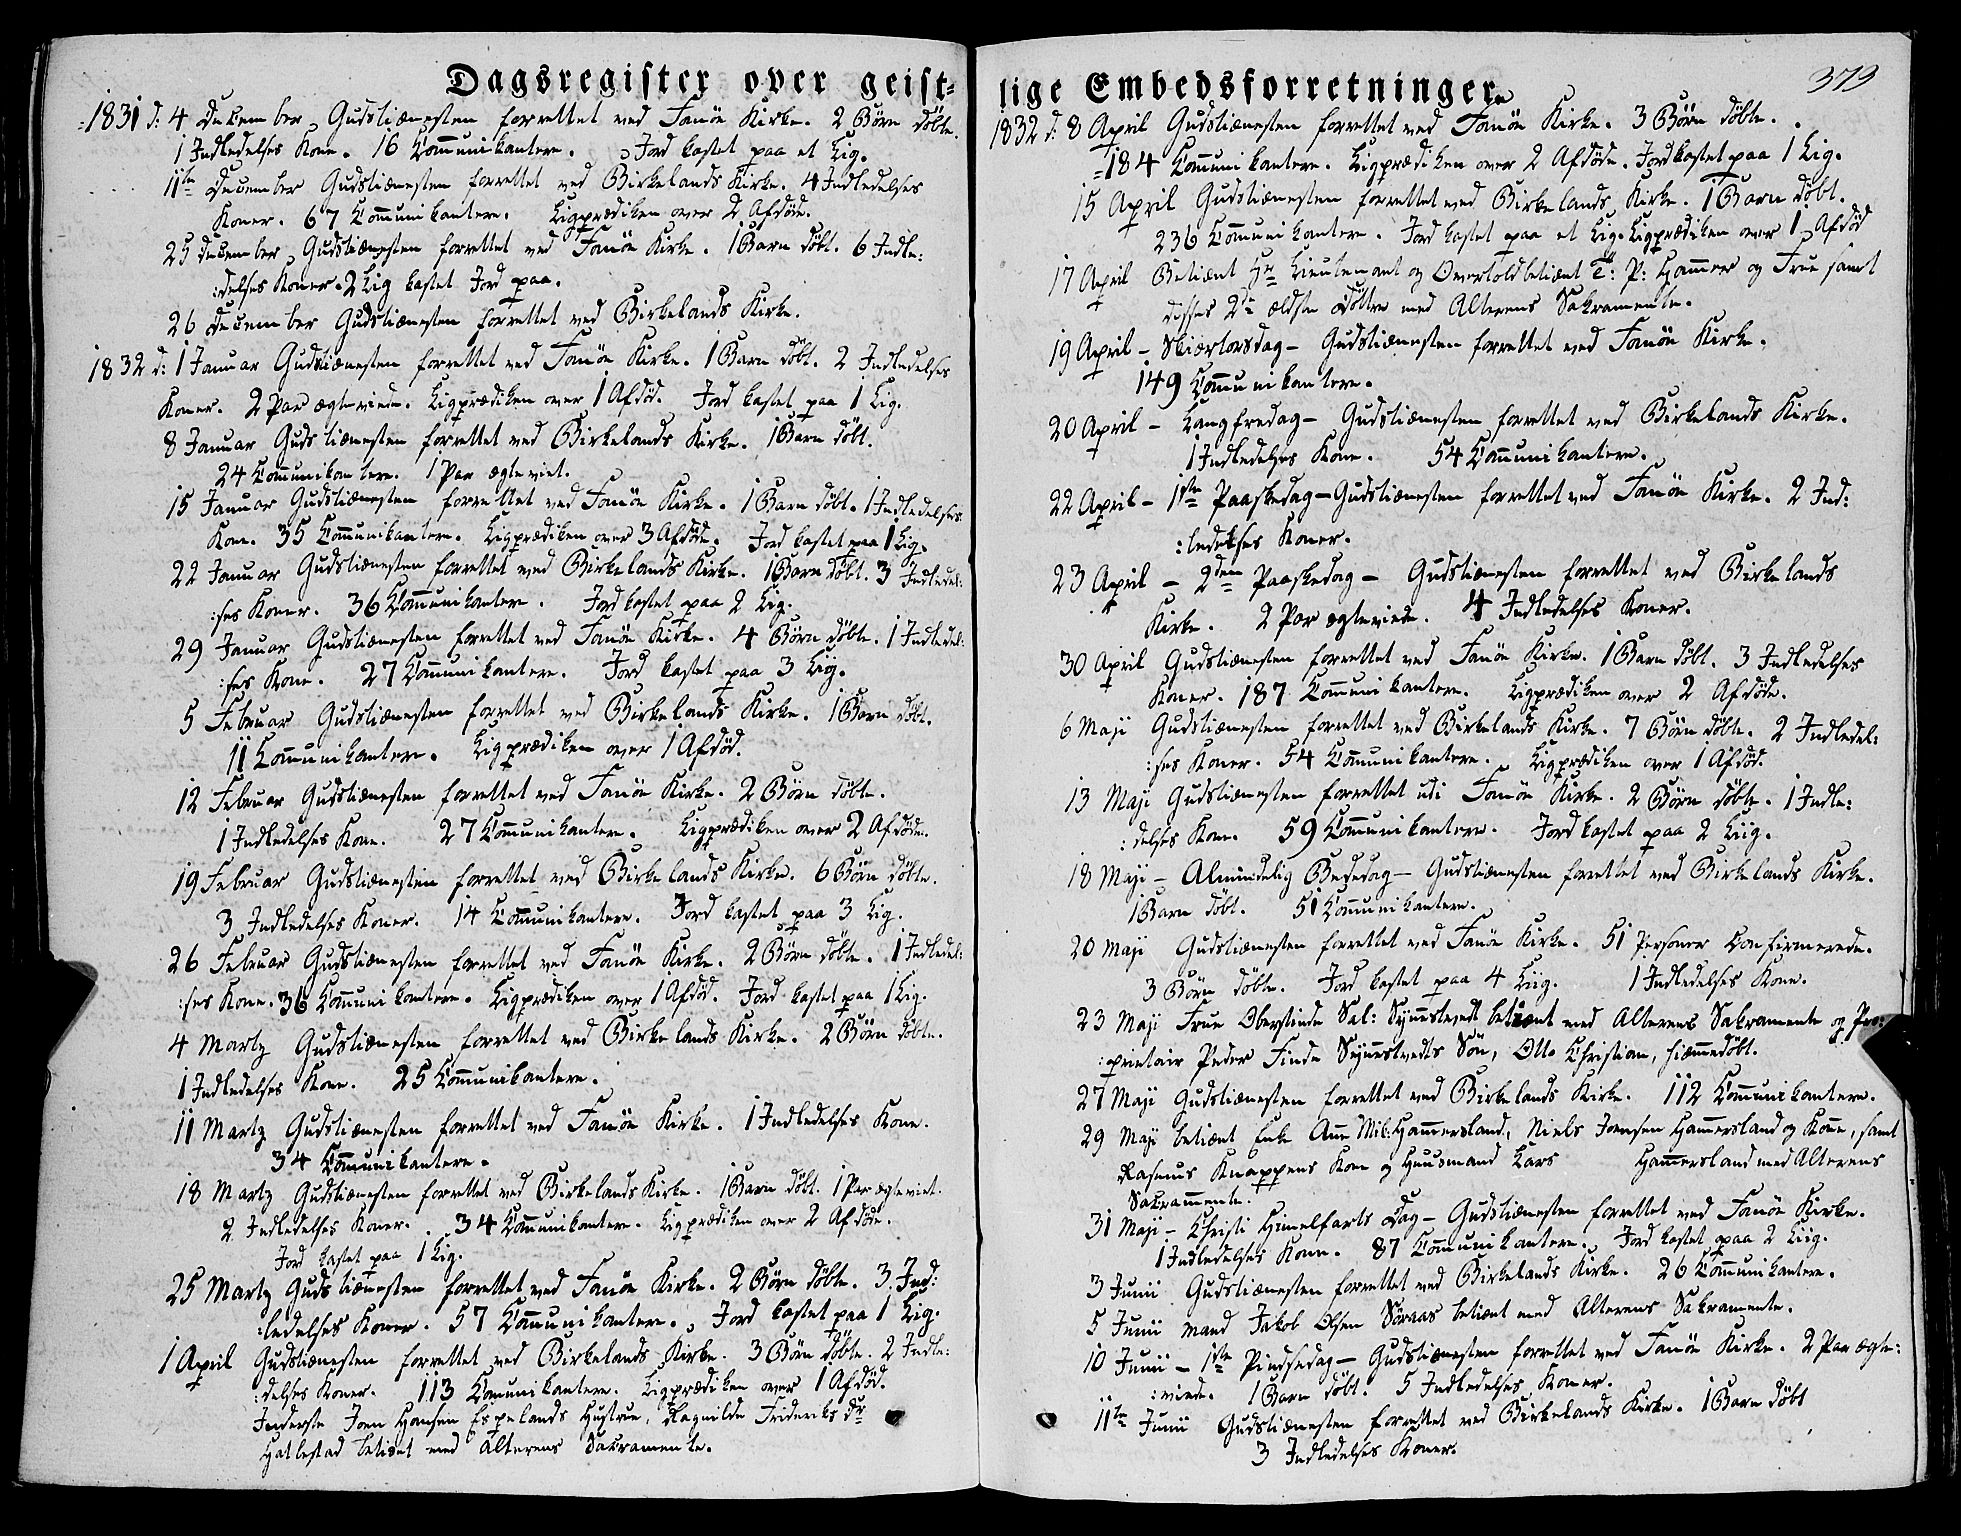 Dagsregister over geist-
1831 d: 4 December Gudstiænesten forrettet ved Fanöe Kirke. 2 Börn döbte.
1 Indledelses Kone. 16 Com̄unikantere. Jord kastet paa et Lig.
11te December Gudstiænesten forrettet ved Birkelands Kirke. 4 Indledelses
Koner. 67 Com̄unikantere. Ligprædiken over 2 Afdøde.
25 December Gudstiænesten forrettet ved Fanöe Kirke. 1 Barn döbt. 6 Indle:
:delses Koner. 2 Lig kastet Jord paa.
26 December Gudstiænesten forrettet ved Birkelands Kirke.
1832 d: 1 Januar Gudstiænesten forrettet ved Fanöe Kirke. 1 Barn döbt. 2 Indledelses
Koner. 2 Par ægteviede. Ligprædiken over 1 Afdöd. Jord kastet paa 1 Lig.
8 Januar Gudstiænesten forrettet ved Birkelands Kirke. 1 Barn döbt.
24 Com̄unikantere. 1 Par ægteviet.
15 Januar Gudstiænesten forrettet ved Fanöe Kirke. 1 Barn döbt. 1 Indledelses
Kone. 35 Com̄unikantere. Ligprædiken over 3 Afdöde. Jord kastet paa 1 Lig.
22 Januar Gudstiænesten forrettet ved Birkelands Kirke. 1 Barn döbt. 3 Indledel:
:ses Koner. 36 Com̄unikantere. Jord kastet paa 2 Lig.
29 Januar Gudstiænesten forrettet ved Fanöe Kirke. 4 Börn döbte. 1 Indledel:
:ses Kone. 27 Com̄unikantere. Jord kastet paa 3 Liig.
5 Februar Gudstiænesten forrettet ved Birkelands Kirke. 1 Barn döbt.
11 Com̄unikantere. Ligprædiken over 1 Afdöd.
12 Februar Gudstiænesten forrettet ved Fanöe Kirke. 2 Börn döbte.
1 Indledelses Kone. 27 Com̄unikantere. Ligprædiken over 2 Afdöde.
19 Februar Gudstiænesten forrettet ved Birkelands Kirke. 6 Börn döbte.
3 Indledelses Koner. 14 Com̄unikantere. Jord kastet paa 3 Lig.
26 Februar Gudstiænesten forrettet ved Fanöe Kirke. 2 Börn döbte. 1 Indledel:
:ses Kone. 36 Com̄unikantere. Ligprædiken over 1 Afdöd. Jord kastet paa 1 Lig.
4 Martz Gudstiænesten forrettet ved Birkelands Kirke. 2 Börn döbte.
1 Indledelses Kone. 25 Com̄unikantere.
11 Martz Gudstiænesten forrettet ved Fanöe Kirke. 1 Indledelses Kone.
34 Com̄unikantere.
18 Martz Gudstiænesten forrettet ved Birkelands Kirke. 1 Barn döbt. 1 Par ægteviet.
2 Indledelses Koner. 34 Com̄unikantere. Ligprædiken over 2 Afdöde.
Jord kastet paa 1 Lig.
25 Martz Gudstiænesten forrettet ved Fanöe Kirke. 2 Börn döbte. 3 Ind:
:ledelses Koner. 57 Com̄unikantere. Jord kastet paa 1 Lig.
1 April Gudstiænesten forrettet ved Birkelands Kirke. 3 Börn döbte. 2 Indle:
:delses Koner. 113 Com̄unikantere. Ligprædiken over 1 Afdöd.
Inderste Joen Hansen Espelands Hustrue, Ragnilde Frideriks Dr
Hatlestad betient med Alterens Sacramente.
lige Embedsforretninger.
373
1832 d: 8 April Gudstiænesten forrettet ved Fanöe Kirke. 3 Börn döbte.
184 Com̄unikantere. Ligprædiken over 2 Afdöde. Jord kastet paa 1 Lig.
15 April Gudstiænesten forrettet ved Birkelands Kirke. 1 Barn döbt.
236 Com̄unikantere. Jord kastet paa et Lig. Ligprædiken over 1 Afdöd
17 April Betient Hr Lieutenant og Overtoldbetient T: P: Ham̄er og Frue samt
disses 2de ældste Döttre med Alterens Sakramente.
19 April - Skiertorsdag - Gudstiænesten forrettet ved Fanöe Kirke.
149 Com̄unikantere.
20 April - Langfredag - Gudstiænesten forrettet ved Birkelands Kirke.
1 Indledelses Kone. 54 Com̄unikantere.
22 April - 1ste Paaskedag - Gudstiænesten forrettet ved Fanöe Kirke. 2 Ind:
:ledelses Koner.
23 April - 2den Paaskedag - Gudstiænesten forrettet ved Birkelands
Kirke. 2 Par ægteviede. 4 Indledelses Koner.
30 April Gudstiænesten forrettet ved Fanöe Kirke. 1 Barn döbt. 3 Indledelses
Koner. 187 Com̄unikantere. Ligprædiken over 2 Afdöde.
6 Maji Gudstiænesten forrettet ved Birkelands Kirke. 7 Börn döbte. 2 Indledel:
:ses Koner. 54 Com̄unikantere. Ligprædiken over 1 Afdöd.
13 Maji Gudstiænesten forrettet udi Fanöe Kirke. 2 Börn döbte. 1 Indle:
:delses Kone. 59 Com̄unikantere. Jord kastet paa 2 Liig.
18 Maji - Almindelig Bededag - Gudstiænesten forrettet ved Birkelands Kirke.
1 Barn döbt. 51 Com̄unikantere.
20 Maji Gudstiænesten forrettet ved Fanöe Kirke. 51 Personer Confirmerede.
3 Börn döbte. Jord kastet paa 4 Liig. 1 Indledelses Kone.
23 Maji Frue Oberstinde Sal: betient med Alterens Sakramente og Pro:
:prietair Peder Finde Synestvedts Sön, Otto Christian, hiemmedöbt.
27 Maji Gudstiænesten forrettet ved Birkelands Kirke. 112 Com̄unikantere.
29 Maji betient Enke Ane Nils: Ham̄ersland, Niels Jensen Ham̄ersland og Kone, samt
Rasmus Knappens Kone og Huusmand Lars Ham̄ersland med Alterens
Sakram̄ente.
31 Maji - Christi Him̄elfarts Dag - Gudstiænesten forrettet ved Fanöe Kirke.
1 Indledelses Kone. 87 Com̄unikantere. Jord kastet paa 2 Liig.
3 Junii Gudstiænesten forrettet ved Birkelands Kirke. 26 Com̄unikantere.
5 Junii Mand Jakob Olsen Söraas betient med Alterens Sakramente.
10 Junii - 1ste Pindsedag - Gudstiænesten forrettet ved Fanöe Kirke. 2 Par ægte:
:viede. 1 Barn döbt. 5 Indledelses Koner.
11te Junii Gudstiænesten forrettet ved Birkelands Kirke. 1 Barn döbt
3 Indledelses Koner.